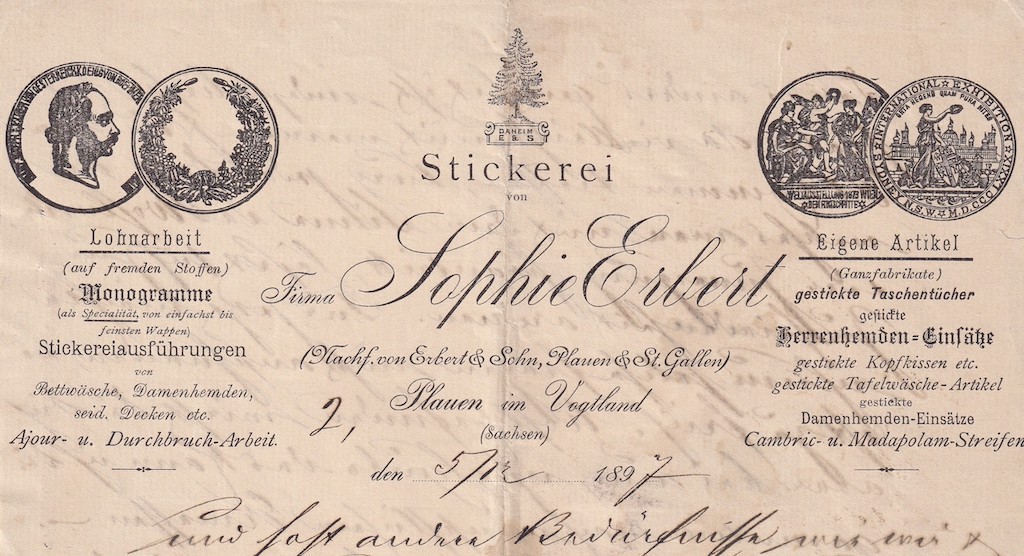 DAHEIM
E & S
Stickerei
von
Firma Sophie Erbert
(Nachf. von Erbert & Sohn, Plauen & St. Gallen)
Plauen im Vogtland
(Sachsen)
2,
den 5/12 1897
Lohnarbeit
(auf fremden Stoffen)
Monogramme
(als Specialität, von einfachst bis
feinsten Wappen)
Stickereiausführungen
von
Bettwäsche, Damenhemden,
seid. Decken etc.
Ajour- u. Durchbruch-Arbeit.
WELTAUSSTELLUNG 1873 WIEN
DEM FORTSCHRITTE
SYDNEY INTERNATIONAL EXHIBITION
N.S.W. M.D.CCCLXXIX
Eigene Artikel
(Ganzfabrikate)
gestickte Taschentücher
gestickte
Herrenhemden-Einsätze
gestickte Kopfkissen etc.
gestickte Tafelwäsche-Artikel
gestickte
Damenhemden-Einsätze
Cambric- u. Madapolam-Streifen
und fast andere Bedürfnisse wie wir